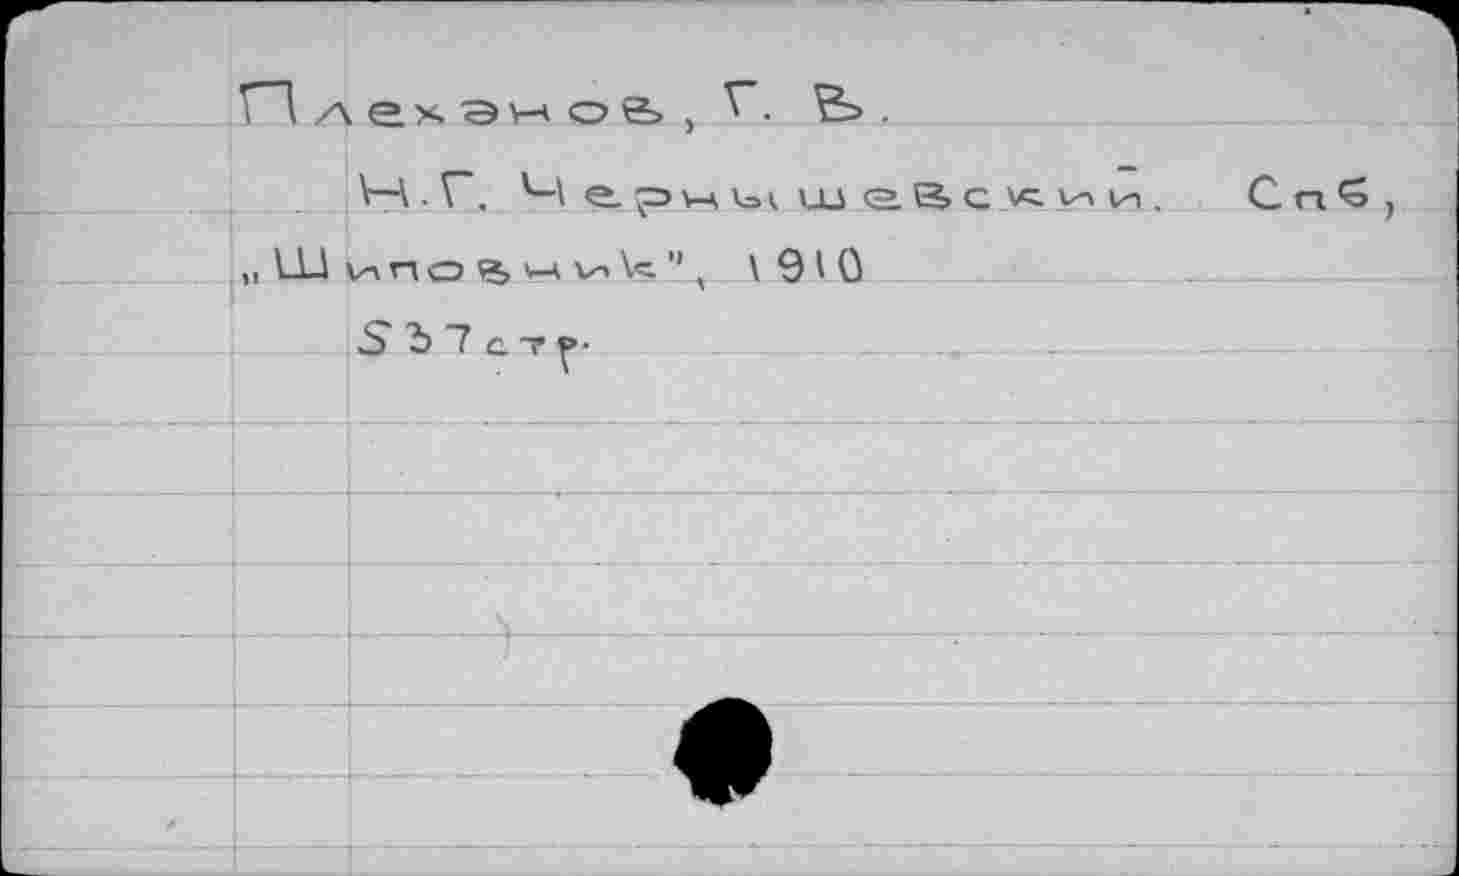 Плеханов, Г. В.
Н.Г. Чернышевский. Спб,
„Шиповник", 1910
537 стр.